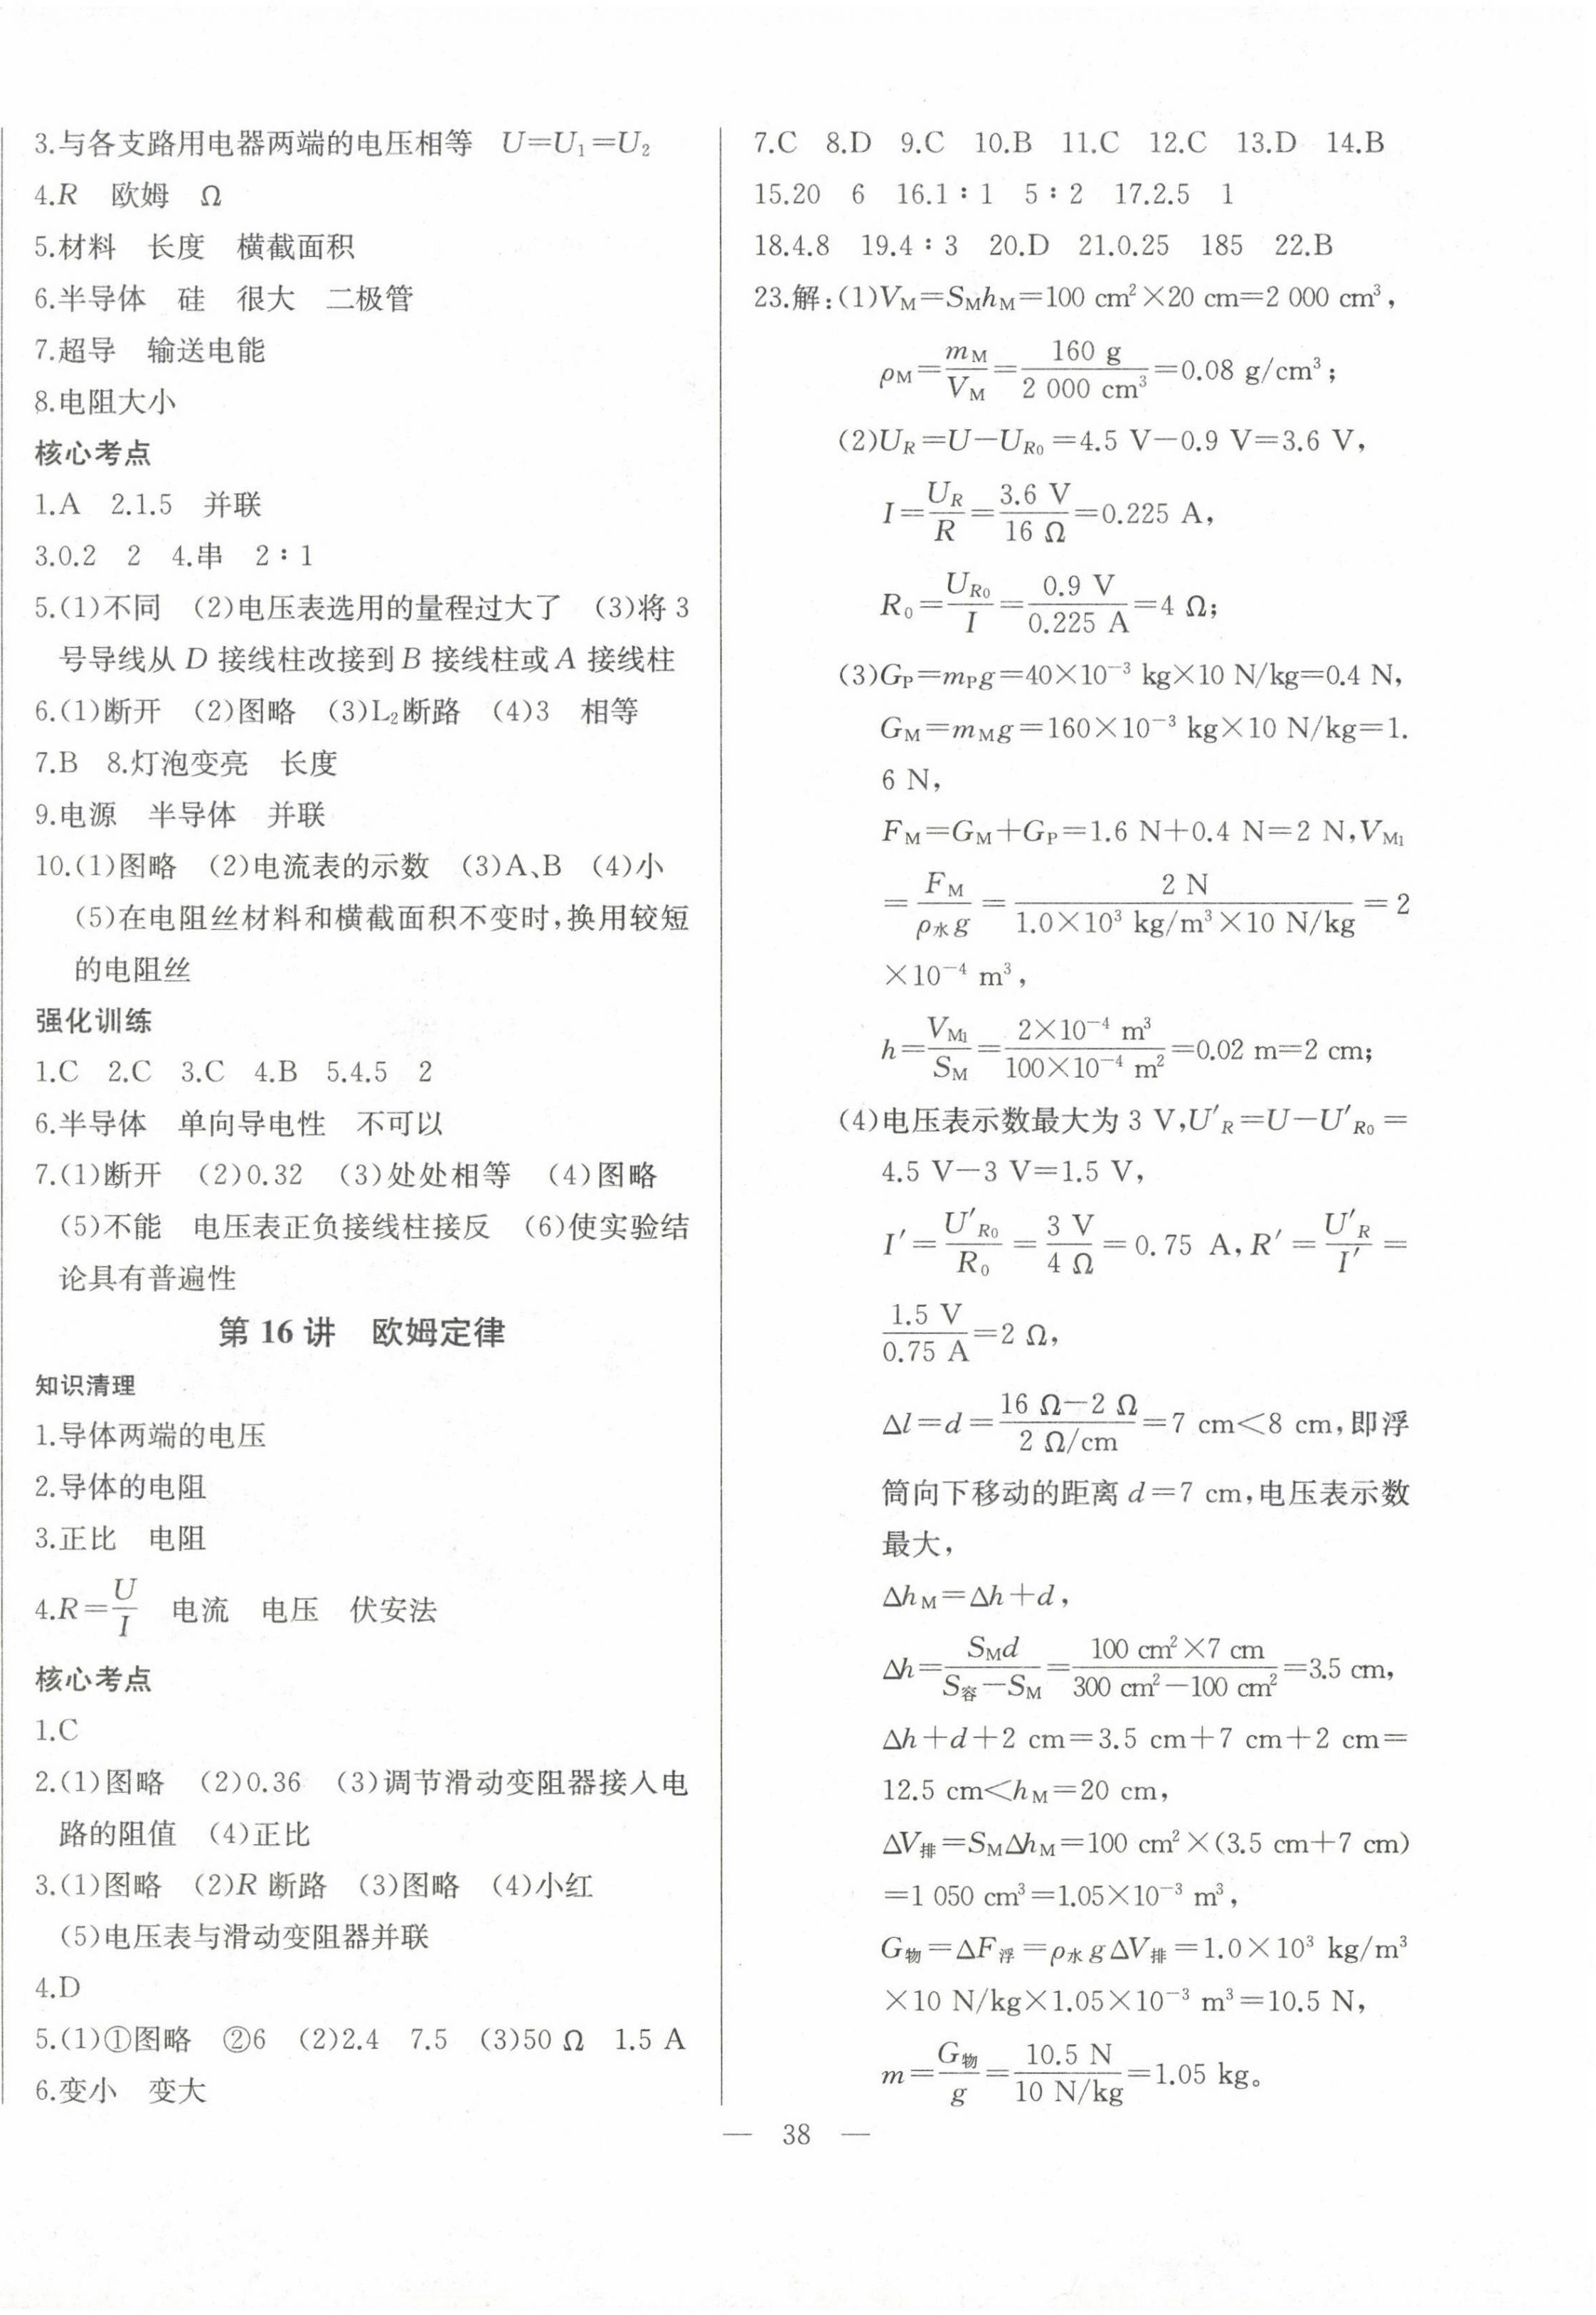 3.与各支路用电器两端的电压相等　U=U₁=U₂
4.R　欧姆　Ω
5.材料　长度　横截面积
6.半导体　硅　很大　二极管
7.超导　输送电能
8.电阻大小
核心考点
1.A　2.1.5　并联
3.0.2　2　4.串　2∶1
5.(1)不同　(2)电压表选用的量程过大了　(3)将 3
号导线从 D 接线柱改接到 B 接线柱或 A 接线柱
6.(1)断开　(2)图略　(3)L₂断路　(4)3　相等
7.B　8.灯泡变亮　长度
9.电源　半导体　并联
10.(1)图略　(2)电流表的示数　(3)A、B　(4)小
(5)在电阻丝材料和横截面积不变时,换用较短
的电阻丝
强化训练
1.C　2.C　3.C　4.B　5.4.5　2
6.半导体　单向导电性　不可以
7.(1)断开　(2)0.32　(3)处处相等　(4)图略
(5)不能　电压表正负接线柱接反　(6)使实验结
论具有普遍性
第 16 讲　欧姆定律
知识清理
1.导体两端的电压
2.导体的电阻
3.正比　电阻
4.R=U/I　电流　电压　伏安法
核心考点
1.C
2.(1)图略　(2)0.36　(3)调节滑动变阻器接入电
路的阻值　(4)正比
3.(1)图略　(2)R 断路　(3)图略　(4)小红
(5)电压表与滑动变阻器并联
4.D
5.(1)①图略　②6　(2)2.4　7.5　(3)50 Ω　1.5 A
6.变小　变大
7.C　8.D　9.C　10.B　11.C　12.C　13.D　14.B
15.20　6　16.1∶1　5∶2　17.2.5　1
18.4.8　19.4∶3　20.D　21.0.25　185　22.B
23.解:(1)V_M=S_M h_M=100 cm²×20 cm=2 000 cm³,
ρ_M=m_M/V_M=160 g/2 000 cm³=0.08 g/cm³;
(2)U_R=U-U_R₀=4.5 V-0.9 V=3.6 V,
I=U_R/R=3.6 V/16 Ω=0.225 A,
R₀=U_R₀/I=0.9 V/0.225 A=4 Ω;
(3)G_P=m_P g=40×10⁻³ kg×10 N/kg=0.4 N,
G_M=m_M g=160×10⁻³ kg×10 N/kg=1.
6 N,
F_M=G_M+G_P=1.6 N+0.4 N=2 N,V_M₁
=F_M/ρ水g=2 N/1.0×10³ kg/m³×10 N/kg=2
×10⁻⁴ m³,
h=V_M₁/S_M=2×10⁻⁴ m³/100×10⁻⁴ m²=0.02 m=2 cm;
(4)电压表示数最大为 3 V,U′_R=U-U′_R₀=
4.5 V-3 V=1.5 V,
I′=U′_R₀/R₀=3 V/4 Ω=0.75 A,R′=U′_R/I′=
1.5 V/0.75 A=2 Ω,
Δl=d=16 Ω-2 Ω/2 Ω/cm=7 cm<8 cm,即浮
筒向下移动的距离 d=7 cm,电压表示数
最大,
Δh_M=Δh+d,
Δh=S_M d/S容-S_M=100 cm²×7 cm/300 cm²-100 cm²=3.5 cm,
Δh+d+2 cm=3.5 cm+7 cm+2 cm=
12.5 cm<h_M=20 cm,
ΔV排=S_MΔh_M=100 cm²×(3.5 cm+7 cm)
=1 050 cm³=1.05×10⁻³ m³,
G物=ΔF浮=ρ水gΔV排=1.0×10³ kg/m³
×10 N/kg×1.05×10⁻³ m³=10.5 N,
m=G物/g=10.5 N/10 N/kg=1.05 kg。
— 38 —